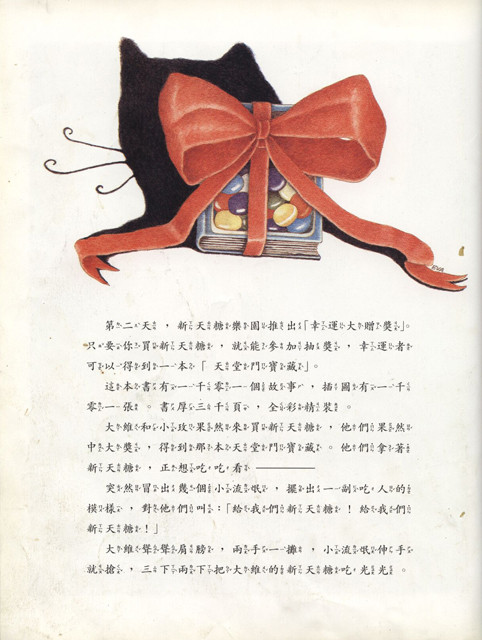 第二天，新天糖樂園推出「幸運大贈獎」。
只要你買新天糖，就能參加抽獎，幸運者
可以得到一本「天堂門寶藏」。
這本書有一千零一個故事，插圖有一千
零一張。書厚三千頁，全彩精裝。
大維和小玫果然來買新天糖，他們果然
中大獎，得到那本天堂門寶藏。他們拿著
新天糖，正想吃吃看——
突然冒出幾個小流氓，擺出一副吃人的
模樣，對他們叫：「給我們新天糖！給我們
新天糖！」
大維聳聳肩膀，兩手一攤，小流氓伸手
就搶，三下兩下把大維的新天糖吃光光。